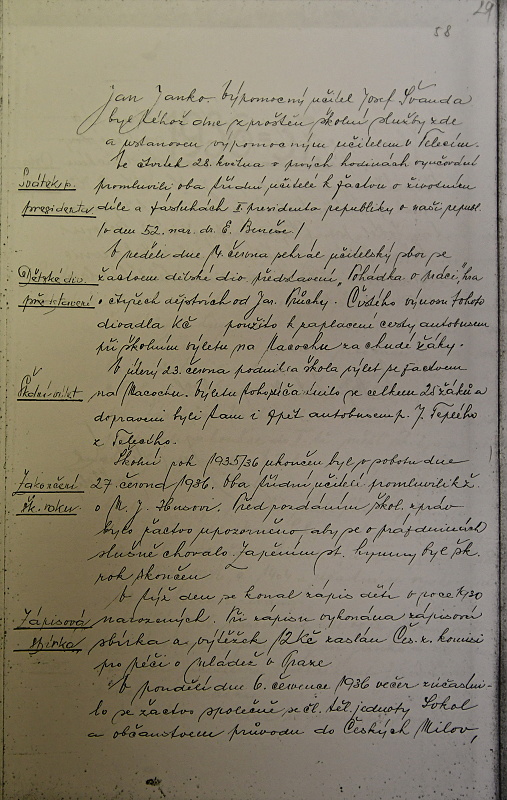 29
58
Jan Janko. Výpomocný učitel Josef Švanda
byl téhož dne zproštěn školní služby zde
a ustanoven výpomocným učitelem v Telecím.
Ve čtvrtek 28. května o prvých hodinách vyučování
Svátek p.
promluvili oba třídní učitelé k žactvu o životním
presidenta
díle a zásluhách II. presidenta republiky o naši republ.
/o den 52. nar. dr. E. Beneše./
V neděli dne 14. června sehrál učitelský sbor se
Dětské div.
žactvem dětské div. představení "Pohádka o práci", hra
představení
o čtyřech dějstvích od Jar. Průchy. Čistého výnosu tohoto
divadla Kč použito k zaplacení cesty autobusem
při školním výletu na Macochu za chudé žáky.
V úterý 23. června podnikla škola výlet se žactvem
Školní výlet
na Macochu. Výletu tohoto účastnilo se celkem 25 žáků a
dopraveni byli tam i zpět autobusem p. J. Teplého
z Telecího.
Školní rok 1935/36 ukončen byl v sobotu dne
Zakončení
27. června 1936. Oba třídní učitelé promluvili k ž.
šk. roku.
o M. J. Husovi. Před rozdáním škol. zpráv
bylo žactvo upozorněno aby se o prázdninách
slušně chovalo. Zapěním st. hymny byl šk.
rok skončen
V týž den se konal zápis dětí v roce 1930
Zápisová
narozených. Při zápisu vykonána zápisová
sbírka
sbírka a výtěžek 12 Kč zaslán Čes. z. komisi
pro péči o mládež v Praze
V pondělí dne 6. července 1936 večer zúčastni-
lo se žactvo společně se čl. těl. jednoty Sokol
a občanstvem průvodu do Českých Milov,